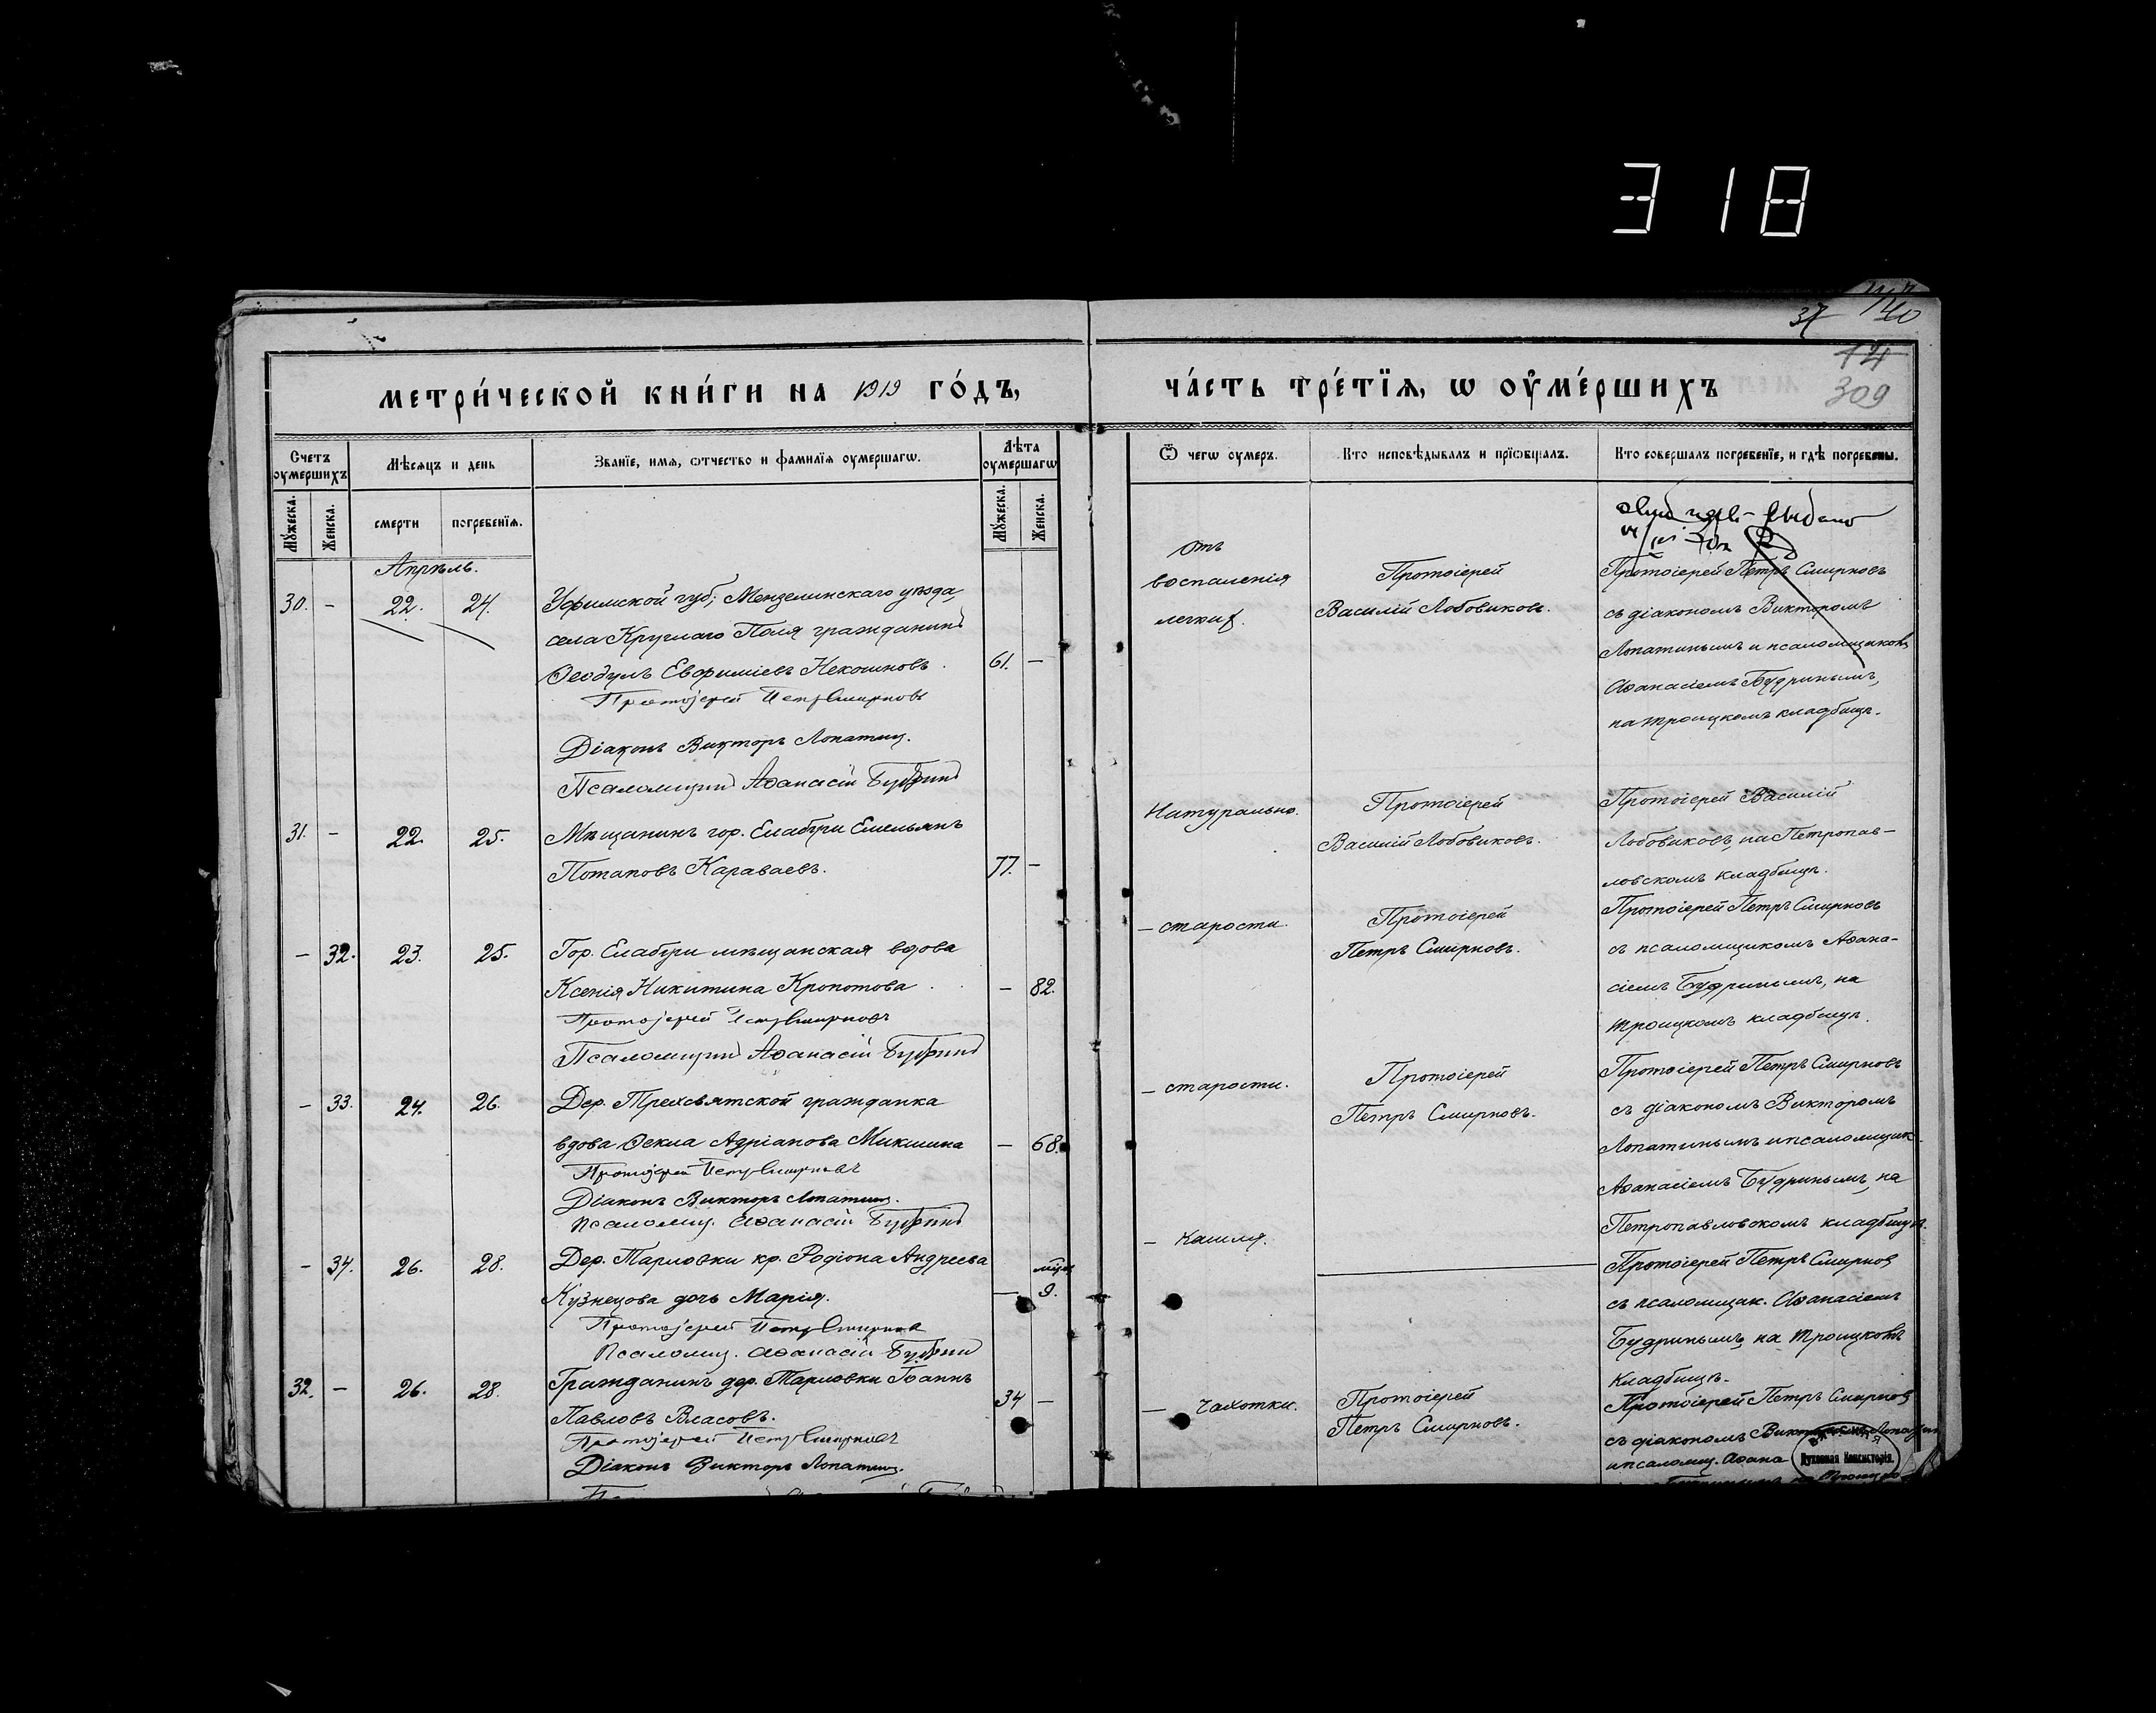 318
37
140
14
309
метри́ческой кни́ги на 1919 го́дъ,
ча́сть тре́тїѧ, ѡ оу҆ме́ршихъ
Счетъ оумершихъ
Мѣсяцъ и день
Званїе, имѧ, ѿчество и фамилїѧ оумершагѡ.
Лѣта оумершагѡ
Ѿ чегѡ оумеръ.
Кто исповѣдывалъ и прїѡбщалъ.
Кто совершалъ погребенїе, и гдѣ погребены.
Мꙋжеска.
Женска.
смерти
погребенїѧ.
Мꙋжеска.
Женска.
Апрѣль.
30. - 22. 24.
Уфимской губ., Мензелинскаго уѣзда,
села Круглаго Поля гражданинъ
Ѳеодулъ Евфиміевъ Некошновъ. 61. -
Протоіерей Петр Смирновъ
Діаконъ Викторъ Лопатин.
Псаломщикъ Аѳанасій Будринъ
отъ
воспаленія
легких.
Протоіерей
Василій Лобовиковъ.
Протоіерей Петръ Смирновъ
съ діакономъ Викторомъ
Лопатинымъ и псаломщикомъ
Аѳанасіемъ Будринымъ,
на Троицкомъ кладбищѣ.
31. - 22. 25.
Мѣщанинъ гор. Елабуги Емельянъ
Потаповъ Караваевъ. 77. -
Натурально.
Протоіерей
Василій Лобовиковъ.
Протоіерей Василій
Лобовиковъ, на Петропав-
ловскомъ кладбищѣ.
- 32. 23. 25.
Гор. Елабуги мѣщанская вдова
Ксенія Никитина Кропотова. - 82.
Протоіерей Петр Смирновъ
Псаломщикъ Аѳанасій Будринъ
- старости.
Протоіерей
Петръ Смирновъ.
Протоіерей Петръ Смирновъ
съ псаломщикомъ Аѳана-
сіемъ Будринымъ, на
Троицкомъ кладбищѣ.
- 33. 24. 26.
Дер. Трехсвятской гражданка
вдова Ѳекла Адріанова Микшина - 68
Протоіерей Петр Смирновъ
Діаконъ Викторъ Лопатин.
Псаломщ. Аѳанасій Будринъ
- старости.
Протоіерей
Петръ Смирновъ.
Протоіерей Петръ Смирновъ
съ діакономъ Викторомъ
Лопатинымъ и псаломщик.
Аѳанасіемъ Будринымъ, на
Петропавловскомъ кладбищѣ.
- 34. 26. 28.
Дер. Тарловки кр. Родіона Андреева
Кузнецова дочь Марія. - 9.
Протоіерей Петр Смирновъ
Псаломщ. Аѳанасій Будринъ
- Кашля.
Протоіерей Петръ Смирнов
съ псаломщик. Аѳанасіемъ
Будринымъ, на Троицкомъ
кладбищѣ.
32. - 26. 28.
Гражданинъ дер. Тарловки Іоаннъ
Павловъ Власовъ. 34 -
Протоіерей Петр Смирновъ
Діаконъ Викторъ Лопатин.
- Чахотки.
Протоіерей
Петръ Смирновъ.
Протоіерей Петръ Смирнов
съ діакономъ Викторомъ
и псаломщ. Аѳана
Духовная Консисторія.